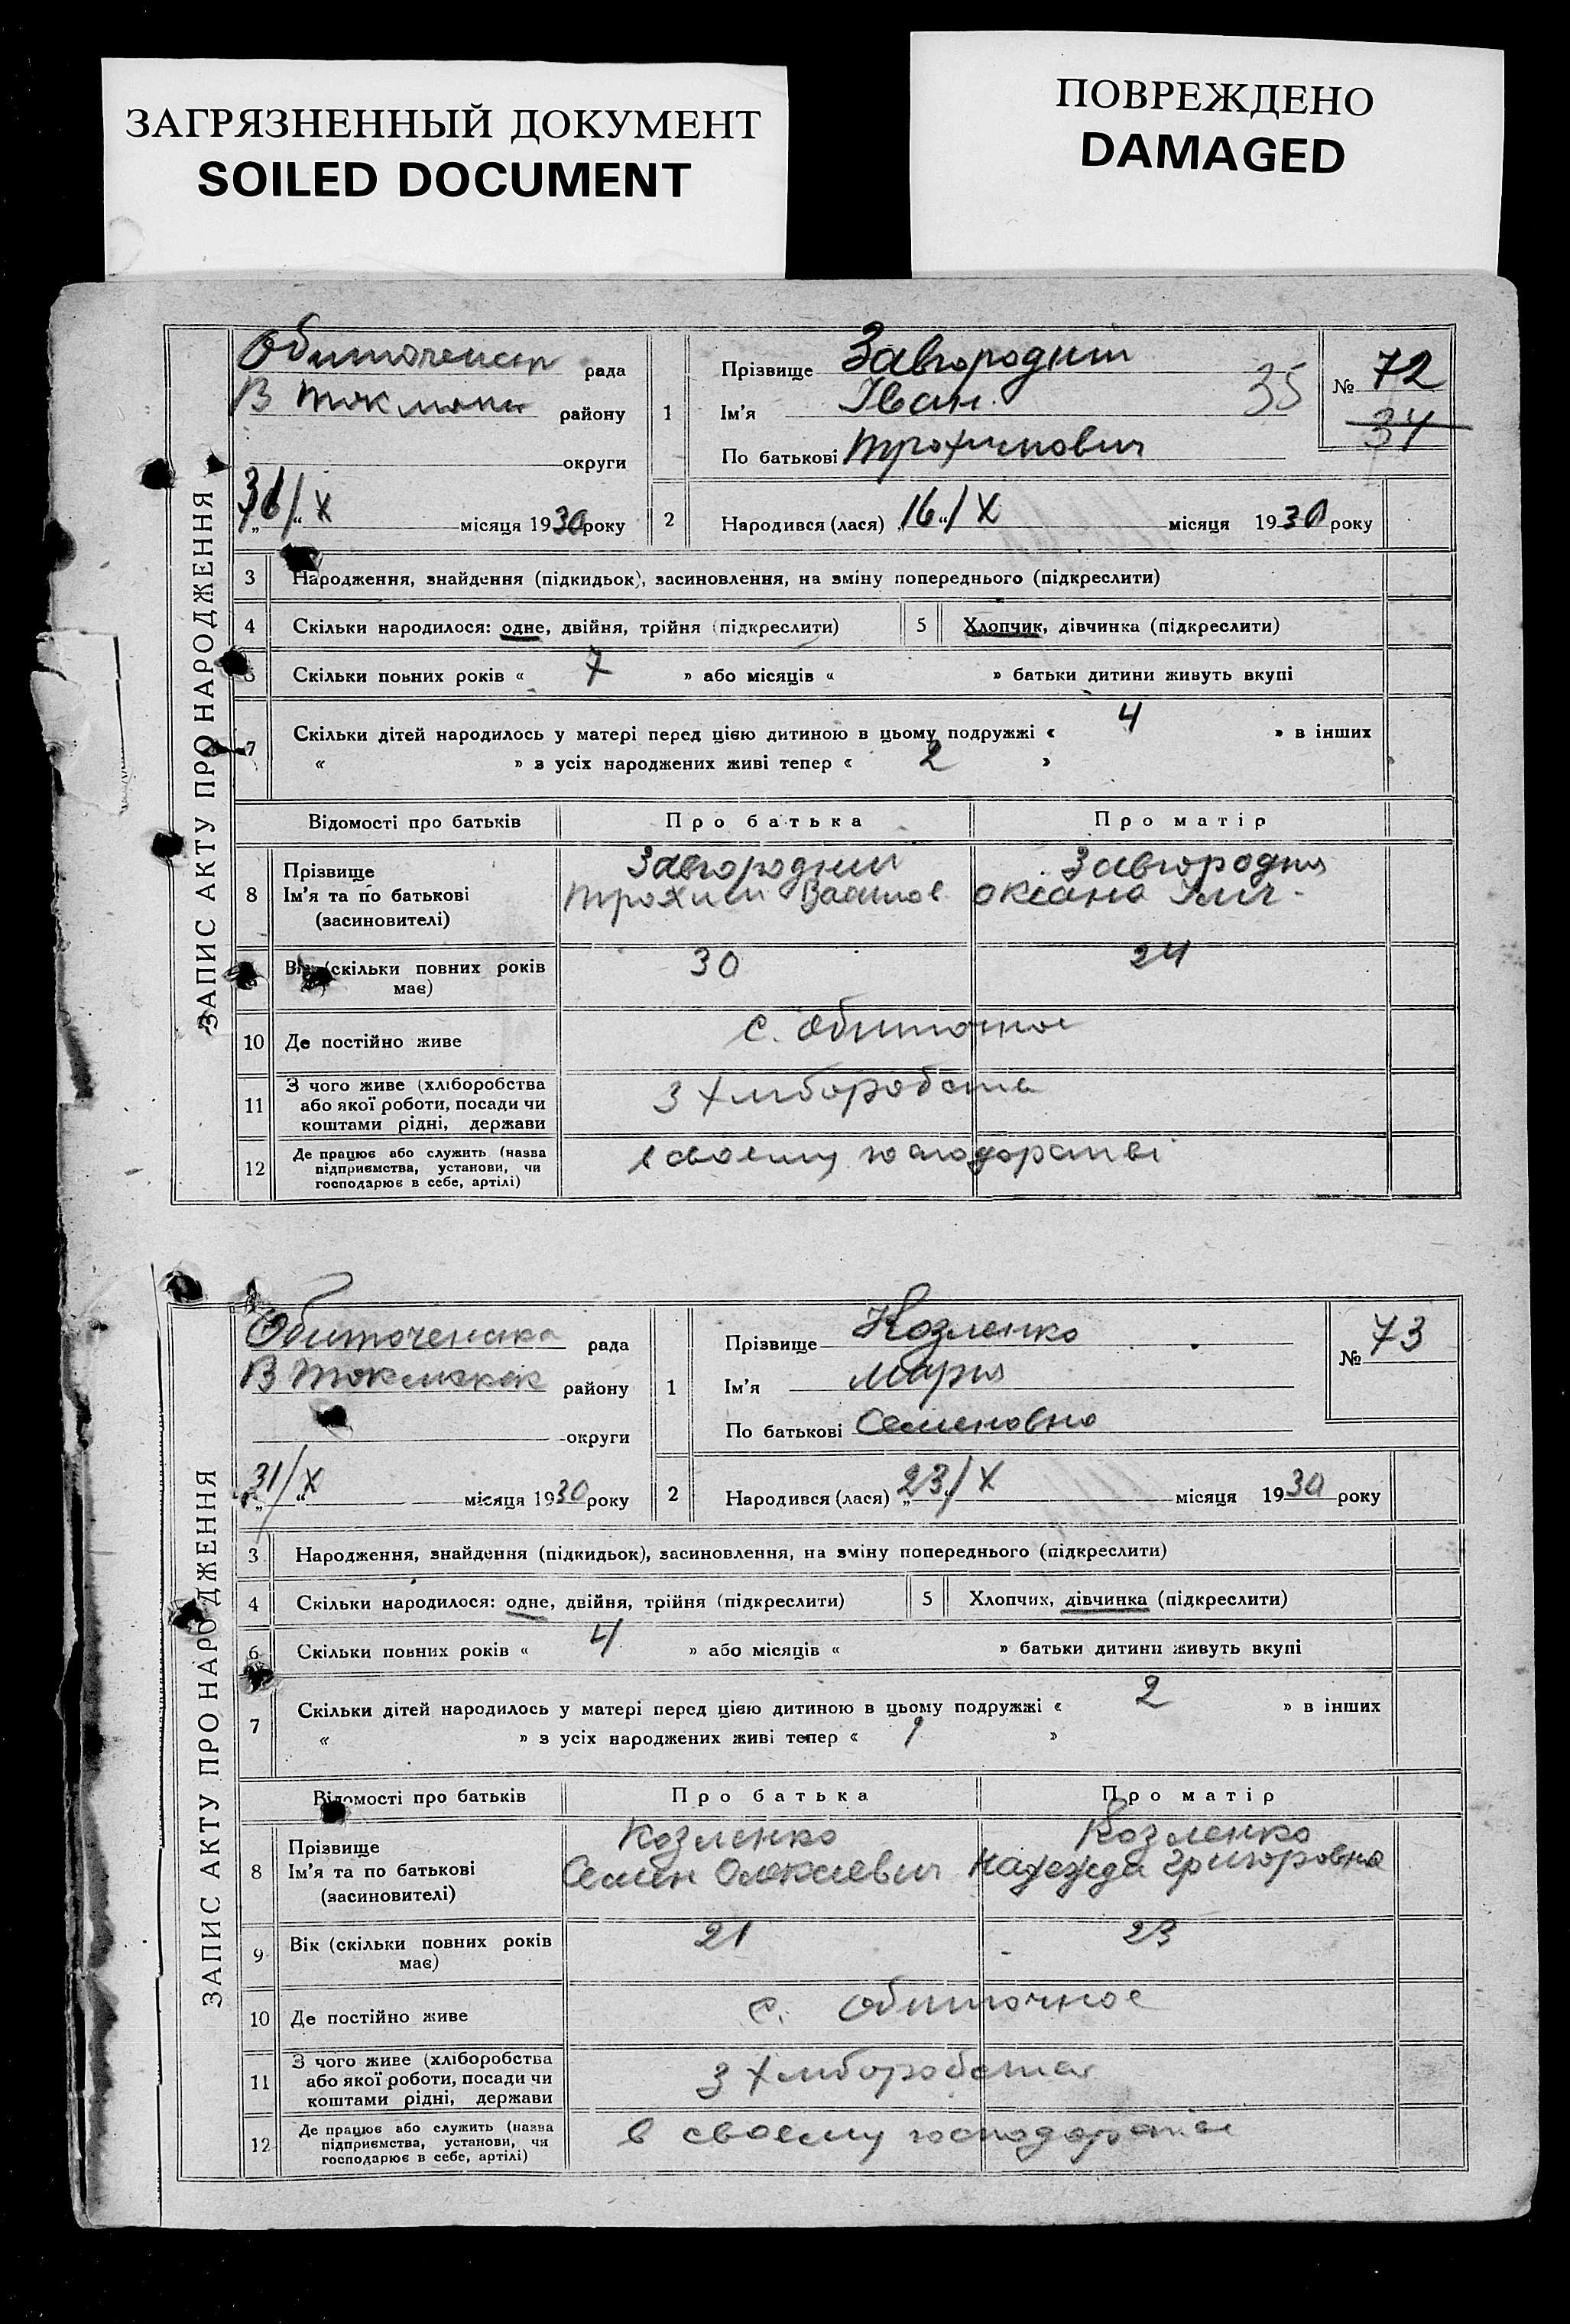 ЗАГРЯЗНЕННЫЙ ДОКУМЕНТ
SOILED DOCUMENT
ПОВРЕЖДЕНО
DAMAGED
ЗАПИС АКТУ ПРО НАРОДЖЕННЯ
рада
В Токмак району
округи
31/X місяця 1930 року
1
Прізвище Завгородний
Ім'я Іван 35
По батькові Трохимович
№ 72
34
2 Народився (лася) „16“/X місяця 1930 року
3 Народження, знайдення (підкидьок), засиновлення, на зміну попереднього (підкреслити)
4 Скільки народилося: одне, двійня, трійня (підкреслити) 5 Хлопчик, дівчинка (підкреслити)
6 Скільки повних років « 7 » або місяців « » батьки дитини живуть вкупі
7 Скільки дітей народилось у матері перед цією дитиною в цьому подружжі « 4 » в інших
« » з усіх народжених живі тепер « 2 »
Відомості про батьків Про батька Про матір
8 Прізвище Завгородний Завгородня
Ім'я та по батькові Трохим Оксана
(засиновителі)
9 Вік (скільки повних років має) 30 24
10 Де постійно живе с. Обиточное
11 З чого живе (хліборобства
або якої роботи, посади чи
коштами рідні, держави
З хліборобства
12 Де працює або служить (назва
підприємства, установи, чи
господарює в себе, артілі)
в своему господарстві
ЗАПИС АКТУ ПРО НАРОДЖЕННЯ
Обиточенска рада
В Токмак району
округи
31/X місяця 1930 року
1
Прізвище Козленко
Ім'я Мария
По батькові Семеновна
№ 73
2 Народився (лася) „23“/X місяця 1930 року
3 Народження, знайдення (підкидьок), засиновлення, на зміну попереднього (підкреслити)
4 Скільки народилося: одне, двійня, трійня (підкреслити) 5 Хлопчик, дівчинка (підкреслити)
6 Скільки повних років « 4 » або місяців « » батьки дитини живуть вкупі
7 Скільки дітей народилось у матері перед цією дитиною в цьому подружжі « 2 » в інших
« » з усіх народжених живі тепер « 1 »
Відомості про батьків Про батька Про матір
8 Прізвище Козленко Козленко
Ім'я та по батькові Семен Олексиевич Надежда Григоровна
(засиновителі)
9 Вік (скільки повних років
має) 21 23
10 Де постійно живе с. Обиточное
11 З чого живе (хліборобства
або якої роботи, посади чи
коштами рідні, держави
З хліборобства
12 Де працює або служить (назва
підприємства, установи, чи
господарює в себе, артілі)
в своему господарстве